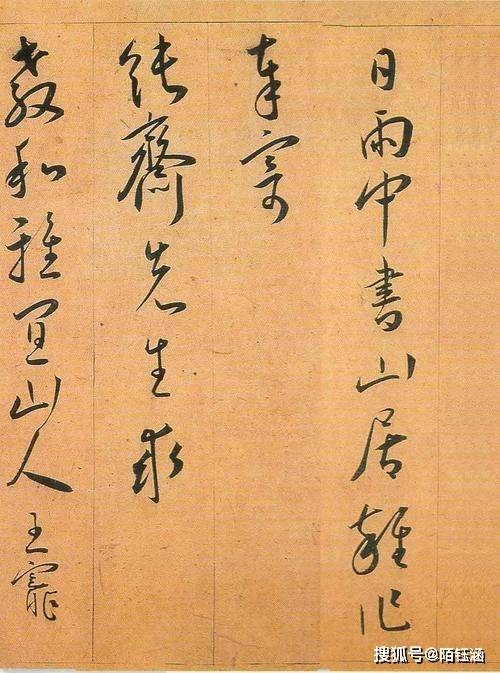 日雨中書山居雜作
奉寄
齋先生求
教和雅宜山人王寵
搜狐号@陌钰涵